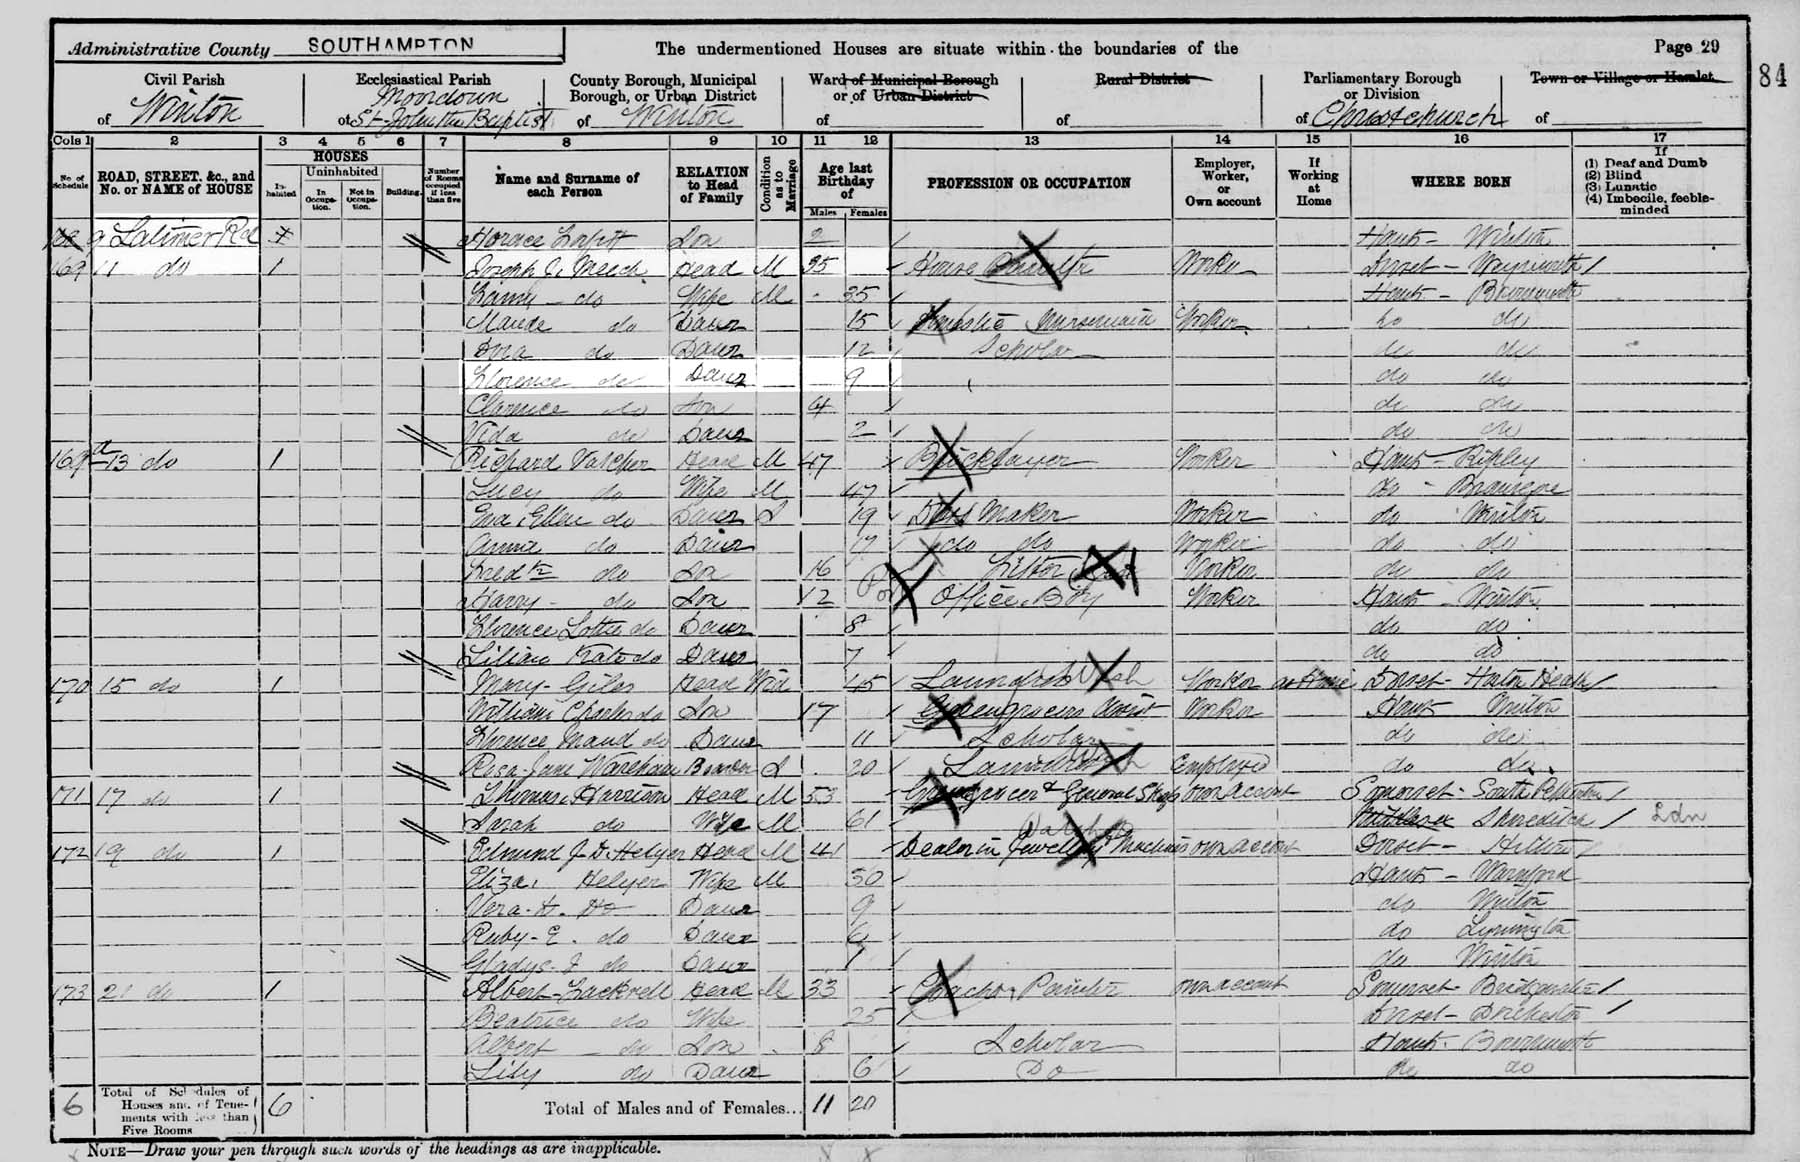 Administrative County SOUTHAMPTON The undermentioned Houses are situate within the boundaries of the Page 29
84
Civil Parish Ecclesiastical Parish County Borough, Municipal Borough, or Urban District Ward of Municipal Borough or of Urban District Rural District Parliamentary Borough or Division Town or Village or Hamlet
of Winton of Moordown St John the Baptist of Winton of of of Christchurch of
Cols 1 2 3 4 5 6 7 8 9 10 11 12 13 14 15 16 17
No. of Schedule ROAD, STREET, &c., and No. or NAME of HOUSE HOUSES Inhabited Uninhabited In Occupation. Not in Occupation. Building. Number of Rooms occupied if less than five Name and Surname of each Person RELATION to Head of Family Condition as to Marriage Age last Birthday of Males Females PROFESSION OR OCCUPATION Employer, Worker, or Own account If Working at Home WHERE BORN If (1) Deaf and Dumb (2) Blind (3) Lunatic (4) Imbecile, feeble-minded
9 Latimer Rd Horace Son 2 Hants - Winton
169 11 do 1 Joseph J. Meech Head M 35 House Painter Worker Dorset - Weymouth
do Wife M 35 Hants - Bournemouth
Maude do Daur 15 Domestic Nursemaid Worker do do
Dora do Daur 12 Scholar do do
Florence do Daur 9 do do
Clarence do Son 4 do do
Vida do Daur 2 do do
169a 13 do 1 Richard Vatcher Head M 47 Bricklayer Worker Hants - Ripley
Lucy do Wife M 47 do -
Eva Ellen do Daur S 19 Dress Maker Worker do Winton
Annie do Daur 17 do do Worker do do
Fredk do Son 16 Worker do do
Harry do Son 12 Office Boy Worker Hants - Winton
Florence Lottie do Daur 8 do do
Lilian Kate do Daur 7 do do
170 15 do 1 Mary Giles Head Wid 45 Laundress Wash Worker at Home Dorset - Horton Heath
William Charles do Son 17 Greengrocers Assist Worker Hants Winton
Florence Maud do Daur 11 Scholar do do
Rosa Jane Wareham Boarder S 20 Employed do do
171 17 do 1 Thomas Harrison Head M 53 Greengrocer & General Shop own account Somerset - South Petherton
Sarah do Wife M 61 Middlesex Shoreditch Ldn
172 19 do 1 Edmund J. D. Helyer Head M 41 Dealer in Jewellery own account Dorset - Hilton
Eliza Helyer Wife M 50 Hants - Warnford
Vera H. Do Daur 9 do Winton
Ruby E. do Daur 6 do Lymington
Gladys J do Daur 1 do Winton
173 21 do 1 Albert Lackrell Head M 33 Coach Painter own account Somerset - Bridgwater
Beatrice do Wife 25 Dorset - Dorchester
Albert do Son 8 Scholar Hants - Bournemouth
Lily do Daur 6 Do do do
6 Total of Schedules of Houses and of Tenements with less than Five Rooms 6 Total of Males and of Females... 11 20
NOTE—Draw your pen through such words of the headings as are inapplicable.